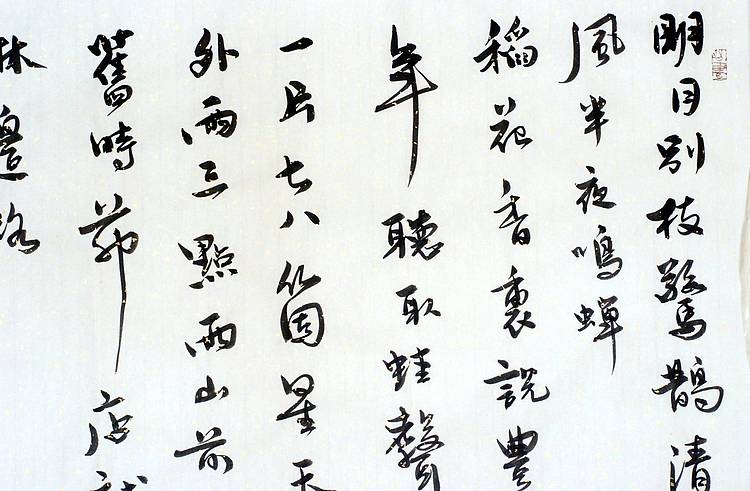 明月別枝驚鵲清
風半夜鳴蟬
稻花香裏說豐
年聽取蛙聲
一片七八箇星天
外兩三點雨山前
舊時茅店社
林邊路